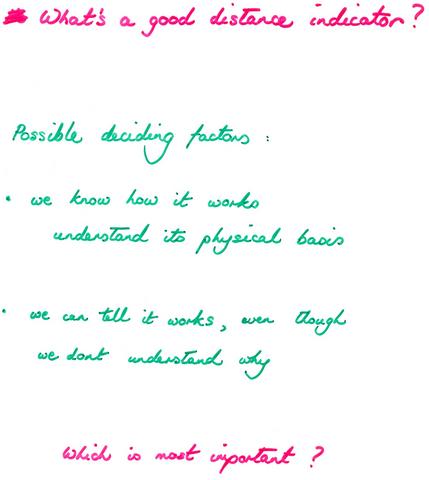 What's a good distance indicator?
Possible deciding factors :
• we know how it works
understand its physical basis
• we can tell it works, even though
we dont understand why
Which is most important ?